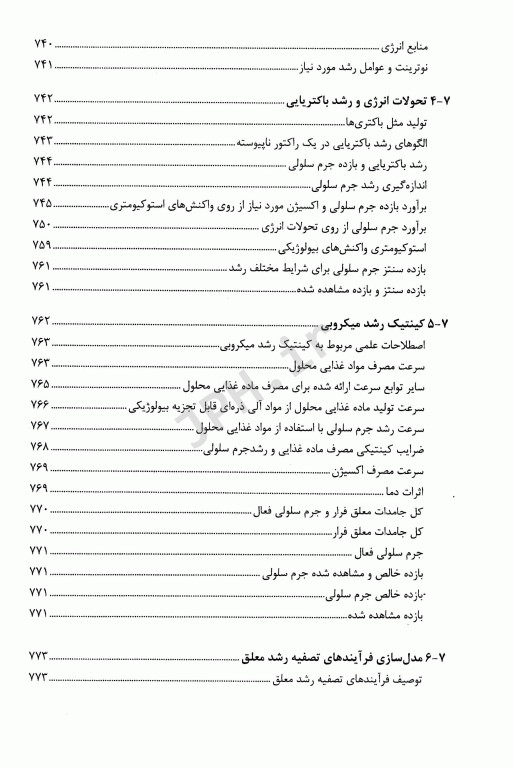 منابع انرژی ۷۴۰
نوترینت و عوامل رشد مورد نیاز ۷۴۱
۴-۷ تحولات انرژی و رشد باکتریایی ۷۴۲
تولید مثل باکتری‌ها ۷۴۲
الگوهای رشد باکتریایی در یک راکتور ناپیوسته ۷۴۳
رشد باکتریایی و بازده جرم سلولی ۷۴۴
اندازه‌گیری رشد جرم سلولی ۷۴۴
برآورد بازده جرم سلولی و اکسیژن مورد نیاز از روی واکنش‌های استوکیومتری ۷۴۵
برآورد جرم سلولی از روی تحولات انرژی ۷۵۰
استوکیومتری واکنش‌های بیولوژیکی ۷۵۹
بازده سنتز جرم سلولی برای شرایط مختلف رشد ۷۶۱
بازده سنتز و بازده مشاهده شده ۷۶۱
۵-۷ کینتیک رشد میکروبی ۷۶۲
اصطلاحات علمی مربوط به کینتیک رشد میکروبی ۷۶۳
سرعت مصرف مواد غذایی محلول ۷۶۳
سایر توابع سرعت ارائه شده برای مصرف ماده غذایی محلول ۷۶۵
سرعت تولید ماده غذایی محلول از مواد آلی ذره‌ای قابل تجزیه بیولوژیکی ۷۶۶
سرعت رشد جرم سلولی با استفاده از مواد غذایی محلول ۷۶۷
ضرایب کینتیکی مصرف ماده غذایی و رشدجرم سلولی ۷۶۸
سرعت مصرف اکسیژن ۷۶۹
اثرات دما ۷۶۹
کل جامدات معلق فرار و جرم سلولی فعال ۷۷۰
کل جامدات معلق فرار ۷۷۰
جرم سلولی فعال ۷۷۱
بازده خالص و مشاهده شده جرم سلولی ۷۷۱
بازده خالص جرم سلولی ۷۷۱
بازده مشاهده شده ۷۷۱
۶-۷ مدل‌سازی فرآیندهای تصفیه رشد معلق ۷۷۳
توصیف فرآیندهای تصفیه رشد معلق ۷۷۳
JPH.ir